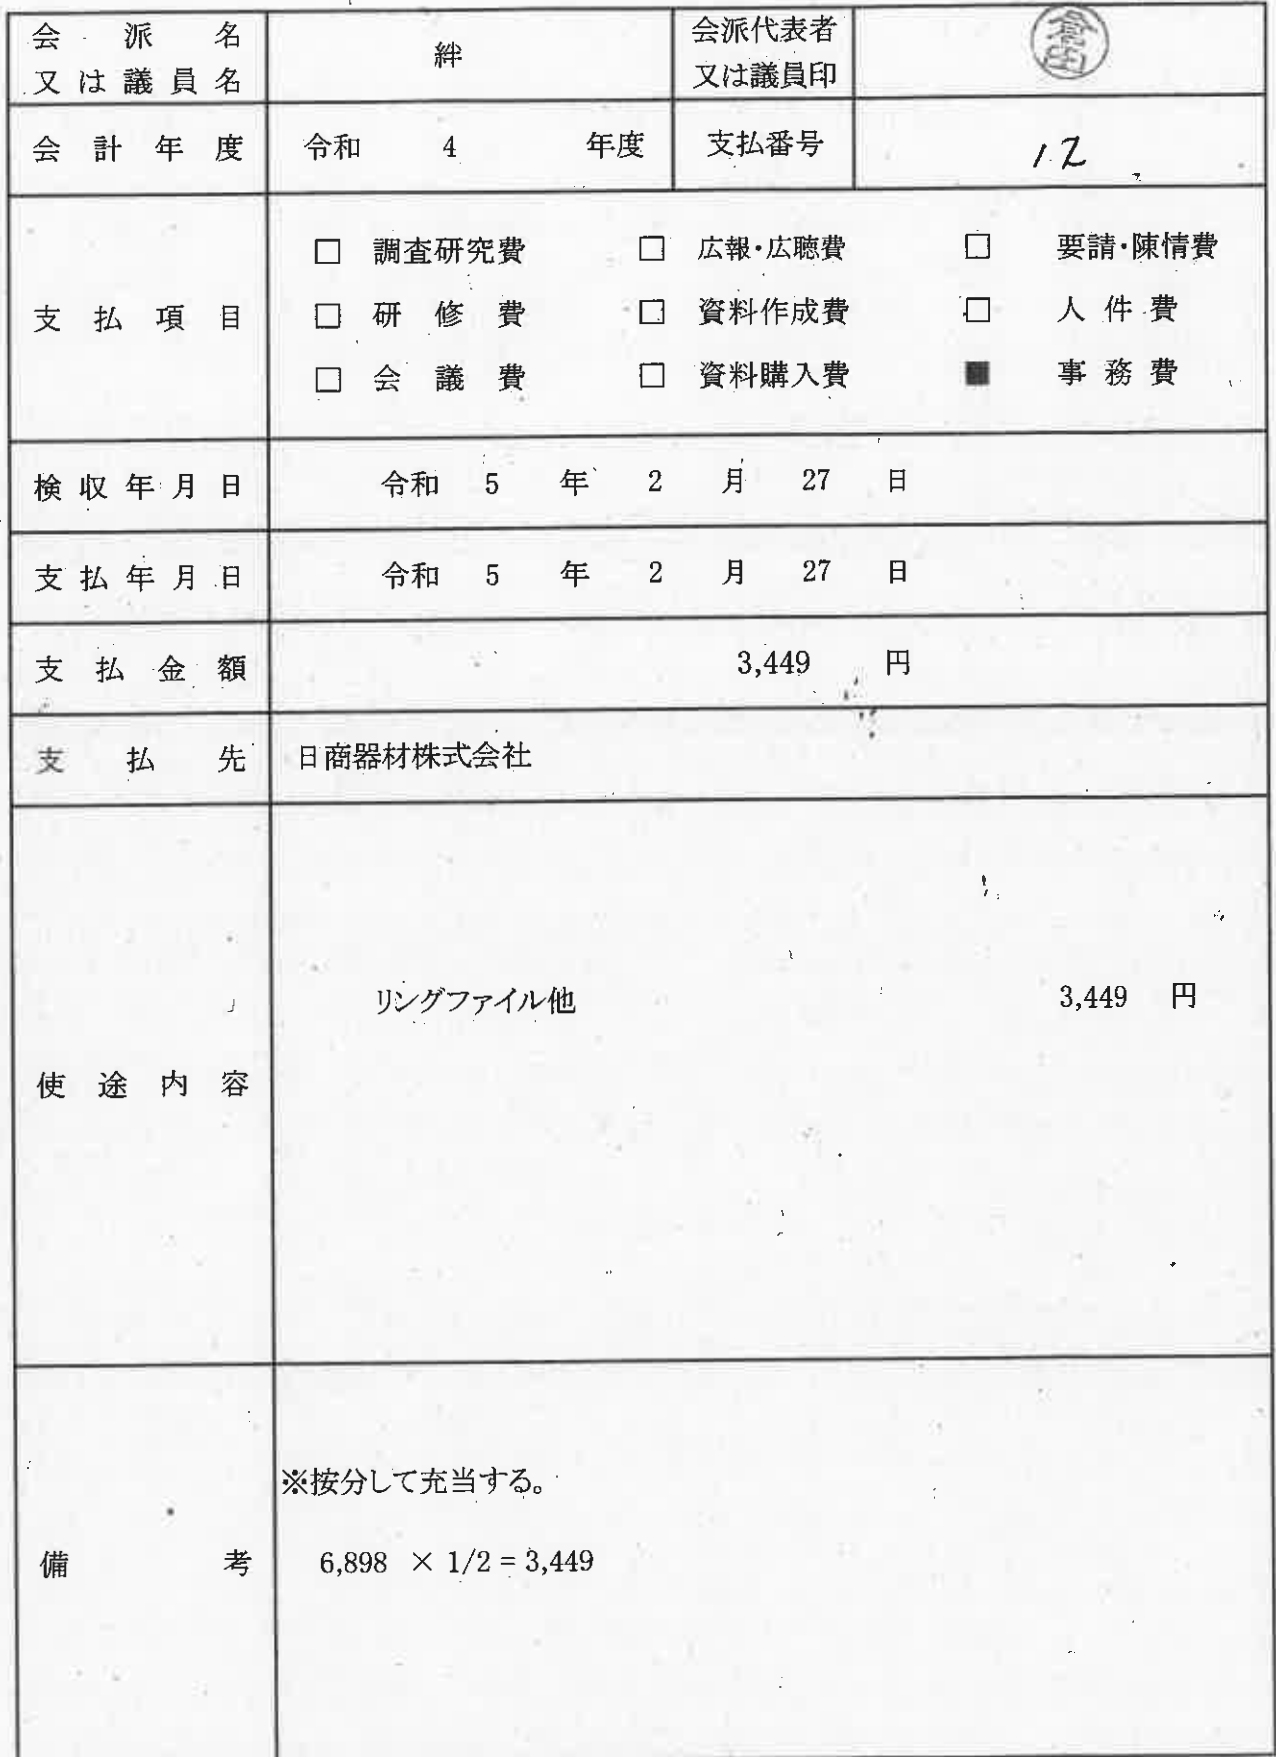 会派名 絆 会派代表者
又は議員名 又は議員印
倉田
会計年度 令和 4 年度 支払番号 12
□ 調査研究費 □ 広報・広聴費 □ 要請・陳情費
支払項目 □ 研修費 □ 資料作成費 □ 人件費
□ 会議費 □ 資料購入費 ■ 事務費
検収年月日 令和 5 年 2 月 27 日
支払年月日 令和 5 年 2 月 27 日
支払金額 3,449 円
支払先 日商器材株式会社
リングファイル他 3,449 円
使途内容
※按分して充当する。
備考 6,898 × 1/2 = 3,449